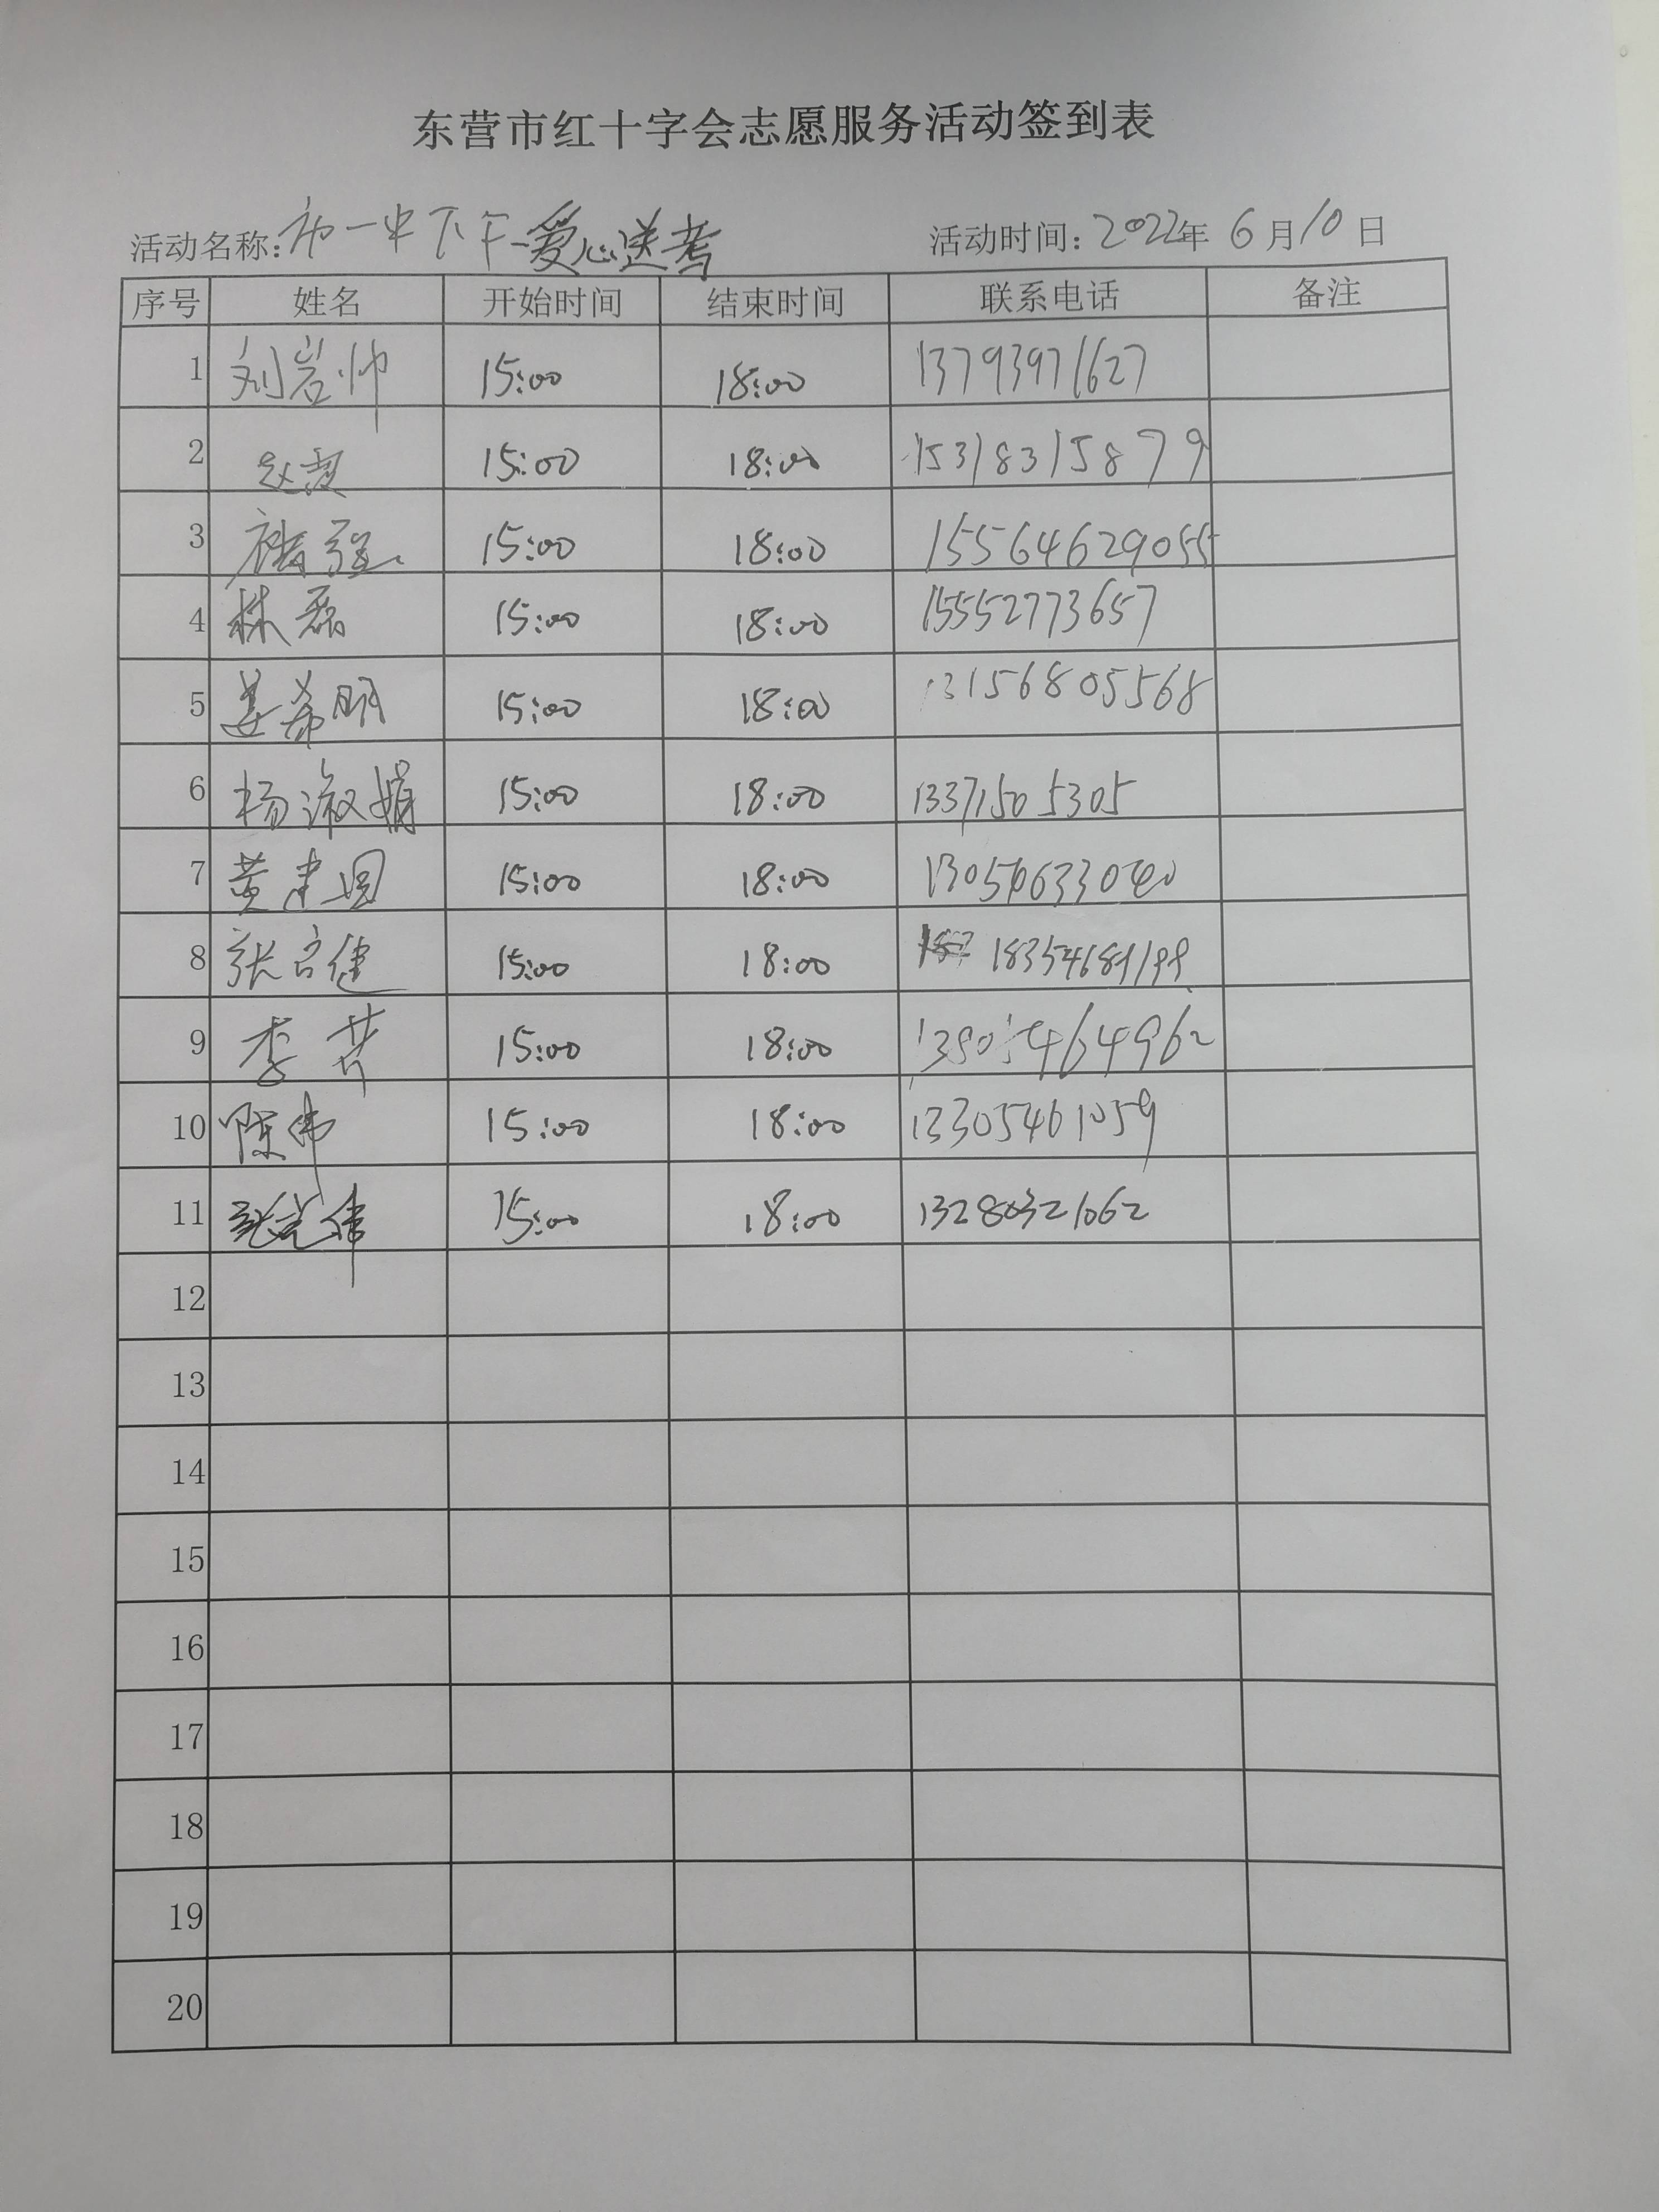 东营市红十字会志愿服务活动签到表
活动名称：市一中下午-爱心送考 活动时间：2022年 6月10日
序号 姓名 开始时间 结束时间 联系电话 备注
1 刘岩帅 15:00 18:00 13793971627
2 15:00 18:00 15318315879
3 15:00 18:00 15564629055
4 林磊 15:00 18:00 15552773657
5 姜希明 15:00 18:00 13156805568
6 杨淑娟 15:00 18:00 13371505305
7 黄建国 15:00 18:00
8 15:00 18:00
9 李芸 15:00 18:00
10 陈伟 15:00 18:00 13305461059
11 15:00 18:00 13280321062
12
13
14
15
16
17
18
19
20